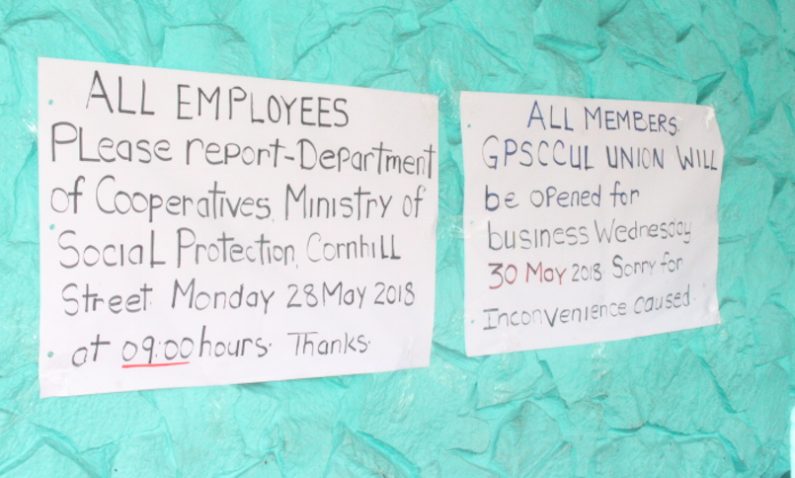 ALL EMPLOYEES
PLease report-Department
of Cooperatives, Ministry of
Social Protection, Cornhill
Street. Monday 28 May 2018
at 09:00 hours. Thanks.
ALL MEMBERS.
GPSCCUL UNION WILL
be opened for
business Wednesday
30 May 2018. Sorry for
Inconvenience caused.